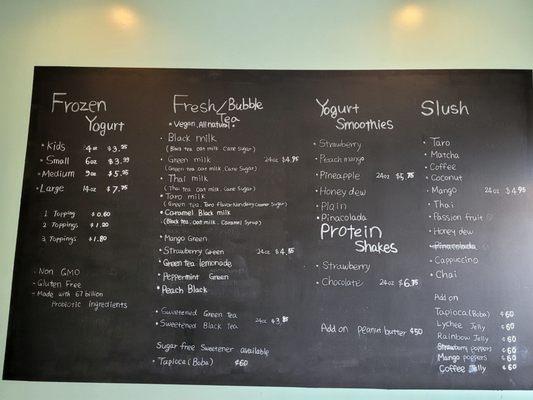 Frozen
Yogurt
• Kids 4oz $3.25
• Small 6oz $3.99
• Medium 9oz $5.95
• Large 14oz $7.75
1 Topping $0.60
2 Toppings $1.20
3 Toppings $1.80
· Non GMO
· Gluten Free
· Made with 67 billion
Probiotic Ingredients
Fresh/Bubble
Tea
* Vegan, All natural *
• Black milk
(Black tea, oat milk, Cane Sugar)
• Green milk 24oz $4.95
(Green tea, Oat milk, Cane Sugar)
• Thai milk
(Thai tea, Oat milk, Cane Sugar)
• Taro milk
(Green tea, Taro flavor
• Caramel Black milk
(Black tea, oat milk, Caramel Syrup)
• Mango Green
• Strawberry Green 24oz $4.85
• Green tea lemonade
• Peppermint Green
• Peach Black
• Sweetened Green Tea
• Sweetened Black Tea 24oz
Sugar free Sweetener available
• Tapioca (Boba) ¢60
Yogurt
Smoothies
• Strawberry
• Peach mango
• Pineapple 24oz $5.75
• Honey dew
• Plain
• Pinacolada
Protein
Shakes
• Strawberry
• Chocolate 24oz
Add on peanut butter ¢50
Slush
• Taro
• Matcha
• Coffee
• Coconut
• Mango 24oz $4.95
• Thai
• Passion fruit
• Honey dew
• Pinacolada
• Cappuccino
• Chai
Add on
Tapioca (Boba) ¢60
Lychee Jelly ¢60
Rainbow Jelly ¢60
Strawberry poppers ¢60
Mango poppers ¢60
Coffee Jelly ¢60